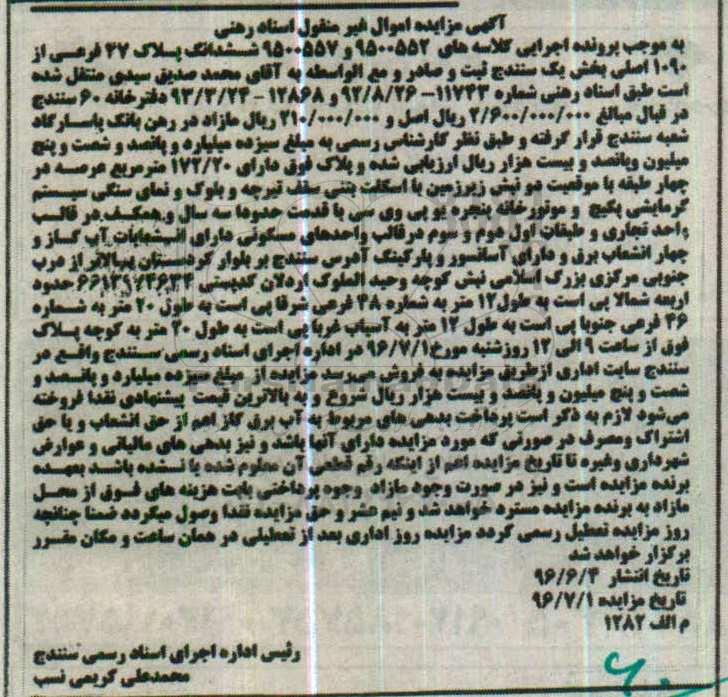 آگهی مزایده اموال غیر منقول اسناد رهنی
به موجب پرونده اجرایی کلاسه های ۹۵۰۰۵۵۲ و ۹۵۰۰۵۵۷ ششدانگ پلاک ۲۷ فرعی از
۱۰۹۰ اصلی بخش یک سنندج ثبت و صادر و مع الواسطه به آقای محمد صدیق سیدی منتقل شده
است طبق اسناد رهنی شماره ۱۱۷۴۳- ۹۲/۸/۲۶ و ۱۲۸۶۸ - ۹۳/۳/۲۴ دفترخانه ۶۰ سنندج
در قبال مبالغ ۲/۶۰۰/۰۰۰/۰۰۰ ریال اصل و ۲۱۰/۰۰۰/۰۰۰ ریال مازاد در رهن بانک پاسارگاد
شعبه سنندج قرار گرفته و طبق نظر کارشناس رسمی به مبلغ سیزده میلیارد و پانصد و شصت و پنج
میلیون وپانصد و بیست هزار ریال ارزیابی شده و پلاک فوق دارای ۱۷۲/۲۰ مترمربع عرصه در
چهار طبقه با موقعیت دو نبش زیرزمین با اسکلت بتنی سقف تیرچه و بلوک و نمای سنگی سیستم
گرمایشی پکیج و موتورخانه پنجره یو پی وی سی با قدمت حدودا سه سال و همکف در قالب
واحد تجاری و طبقات اول دوم و سوم درقالب واحدهای مسکونی دارای انشعابات آب گاز و
چهار انشعاب برق و دارای آسانسور و پارکینگ آدرس سنندج بر بلوار کردستان بالاتر از درب
جنوبی مرکزی بزرگ اسلامی نبش کوچه وحید الملوک اردلان کدپستی حدود
اربعه شمالا پی است به طول ۱۲ متر به شماره ۴۸ فرعی شرقا پی است به طول ۲۰ متر به شماره
۴۶ فرعی جنوبا پی است به طول ۱۲ متر به آسیاب غربا پی است به طول ۲۰ متر به کوچه پلاک
فوق از ساعت ۹ الی ۱۲ روزشنبه مورخ ۹۶/۷/۱ در اداره اجرای اسناد رسمی سنندج واقع در
سنندج سایت اداری ازطریق مزایده به فروش می رسد مزایده از مبلغ سیزده میلیارد و پانصد و
شصت و پنج میلیون و پانصد و بیست هزار ریال شروع و به بالاترین قیمت پیشنهادی نقدا فروخته
می‌شود لازم به ذکر است پرداخت بدهی های مربوط به آب برق گاز اعم از حق انشعاب و یا حق
اشتراک ومصرف در صورتی که مورد مزایده دارای آنها باشد و نیز بدهی های مالیاتی و عوارض
شهرداری وغیره تا تاریخ مزایده اعم از اینکه رقم قطعی آن معلوم شده یا نشده باشد بعهده
برنده مزایده است و نیز در صورت وجود مازاد وجوه پرداختی بابت هزینه های فوق از محل
مازاد به برنده مزایده مسترد خواهد شد و نیم عشر و حق مزایده نقدا وصول میگردد ضمنا چنانچه
روز مزایده تعطیل رسمی گردد مزایده روز اداری بعد از تعطیلی در همان ساعت و مکان مقرر
برگزار خواهد شد
تاریخ انتشار ۹۶/۶/۴
تاریخ مزایده ۹۶/۷/۱
م الف ۱۲۸۲
رئیس اداره اجرای اسناد رسمی سنندج
محمدعلی کریمی نسب